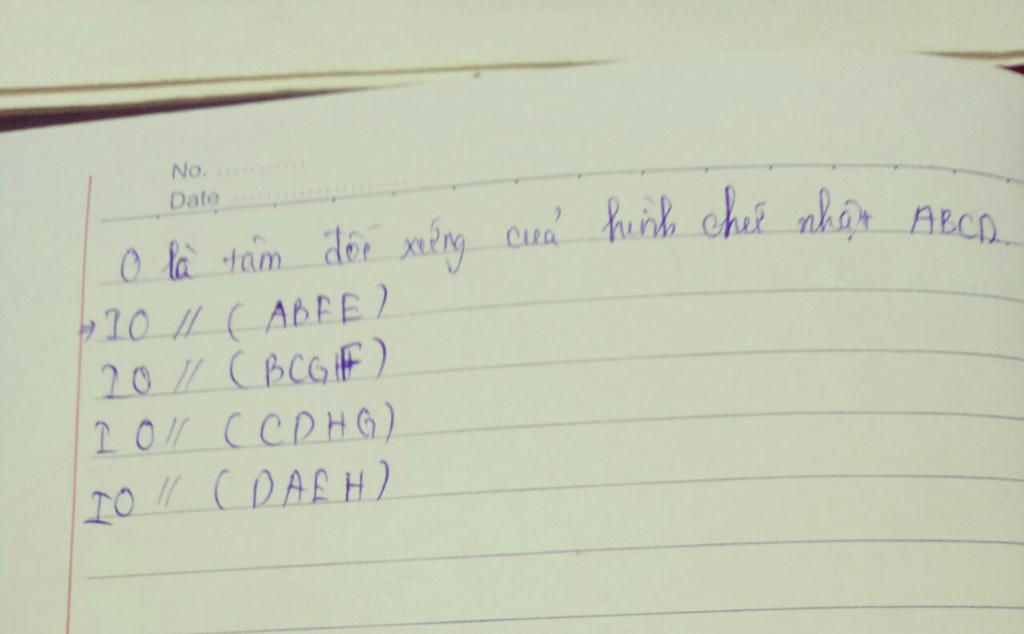 No. ............
Date ........................
O là tâm đối xứng của hình chữ nhật ABCD
→ IO // ( ABFE )
IO // ( BCGF )
IO // ( CDHG )
IO // ( DAEH )